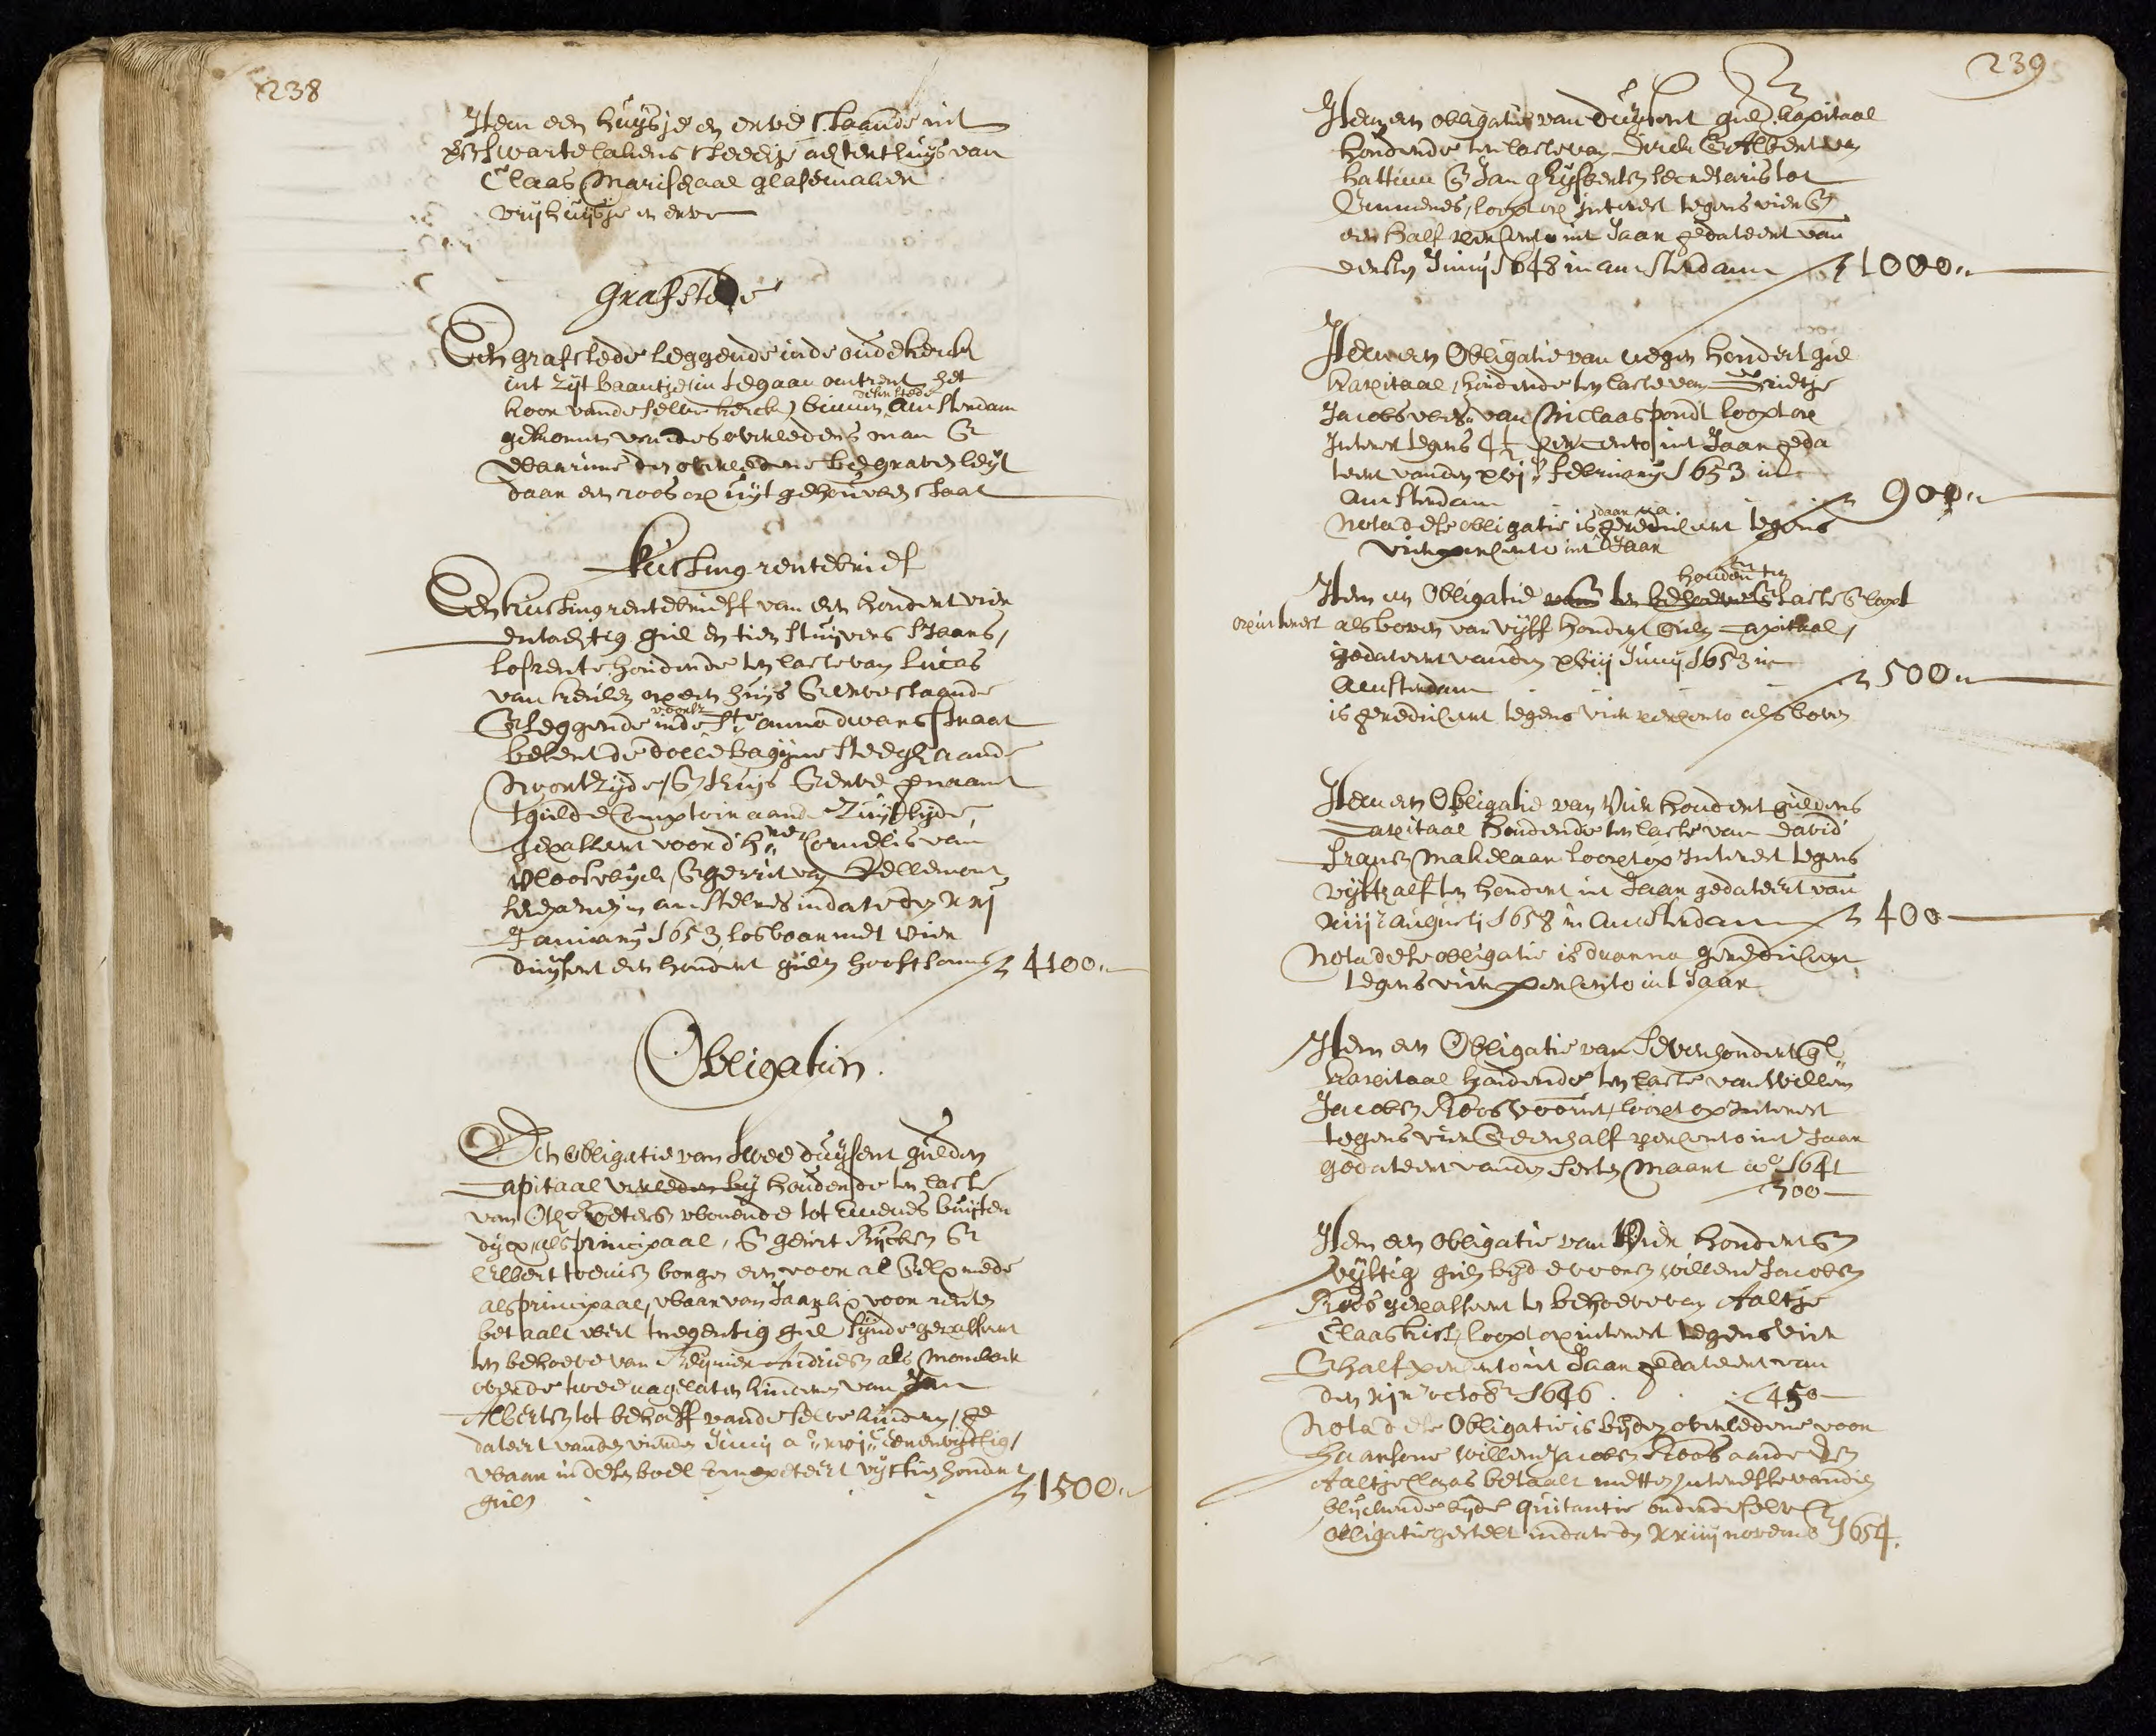 238
Item een huysje en erve staande int
Swarte lakens steechje achter thuys van
Claas Marischaal glasemaker
vryhuysje en erve
Grafstede
Een grafstede leggende inde oude kerck
int zyt baantje in tegaan omtrent het
koor vande selve kerck binnen deser stede Amsterdam
gekomen van des overledens man &
waarinne den overledene begraven leyt
daar een roos op uyt gehouwen staat
Kusting rentebrief
Een kusting rentebrieff van een hondert vier
entachtig gul en tien stuyvers sjaars,
losrente houdende ten laste van Lucas
van Keulen op een huys & erve staande
& leggende inde Ste anna dwarsstraat
belent de dolle bagyne steegh aande
Noortzyde, & thuys & erve genaamt
tguldecomptoir aande Zuytzyde,
gepasseert voor d'hren Cornelis van
Vlooswyck, & Gerrit van Hellemont
schepenen in amstelredam in date den xxj
January 1653 losbaar met vier
duysent een hondert gulden hooftsom 4100
Obligatien.
Een Obligatie van twee duysent gulden
Capitaal verleden by houdende ten laste
van Peters wonende tot Eemenes buyten
dyx, als principaal, & Geurt Rycken &
Elbert borgen een voor al & elx mede
als principaal, waar van Jaarlix voor rente
betaalt wert tnegentig gul synde gepasseert
ten behoeve van Reynier Andriesz als Momboir
over de twee nagelaten kinderen van Jan
Albertsz tot behoeff vande selve kinderen, ge
dateert vanden vierden Juny a° xvj eenenvyftig,
waar in desen boel competeert vyftien hondert
gulden 1500
239
Item een obligatie van duysent guld. kapitaal
houdende ten laste van Dirck & Elbert van
Hattum & Jan Gysbertsz secretaris tot
Eemenes, loopt op Interest tegens vier &
een half percento int Jaar gedateert van
eersten Juny 1648 in amsterdam 1000
Item een Obligatie van negen hondert gul
kapitaal, houdende ten laste van Grietje
Jacobs wed.e van Niclaas pondt loopt op
Interest tegens 4½ percento int Jaar geda
teert vanden xvj february 1653 in
Amsterdam 900
Nota dese obligatie is daar na geredulceert tegens
vier percento int Jaar
Item een Obligatie houdende ten laste & loopt
op interest als boven van vyff hondert gulden Capitaal,
gedateert vanden xviij Juny 1653 in
Amsterdam 500
is geredulceert tegens vier percento als boven
Item een Obligatie van Vier hondert guldens
Capitaal houdende ten laste van David
Fransz Makelaar loopt op Interest tegens
vyfthalf ten hondert int Jaar gedateert van
xiiij augusti 1658 in Amsterdam 400
Nota dese obligatie is daarna geredulceert
tegens vier percento int Jaar
Item een Obligatie van Seven hondert gl
kapitaal houdende ten laste van Willem
Jacobsz Roos voornt, loopt op Interest
tegens vier & een half percento int Jaar
gedateert vanden sesten Maart a° 1641
700
Item een Obligatie van Vier hondert &
vyftig gulden byde voorsz Willem Jacobsz
Roos gepasseert te behoeve van Aaltje
Claas kist, loopt op interest tegens vier
& half percento int Jaar gedateert van
den xjen octob 1646 450
Nota dese Obligatie is byden overledene voor
haar sone Willem Jacobsz Roos aande sen
Aaltje Claas betaalt mette Interesse van dien
blyckende byde quitantie onder de selve
Obligatie gestelt in date den xxiiij novemb 1654.